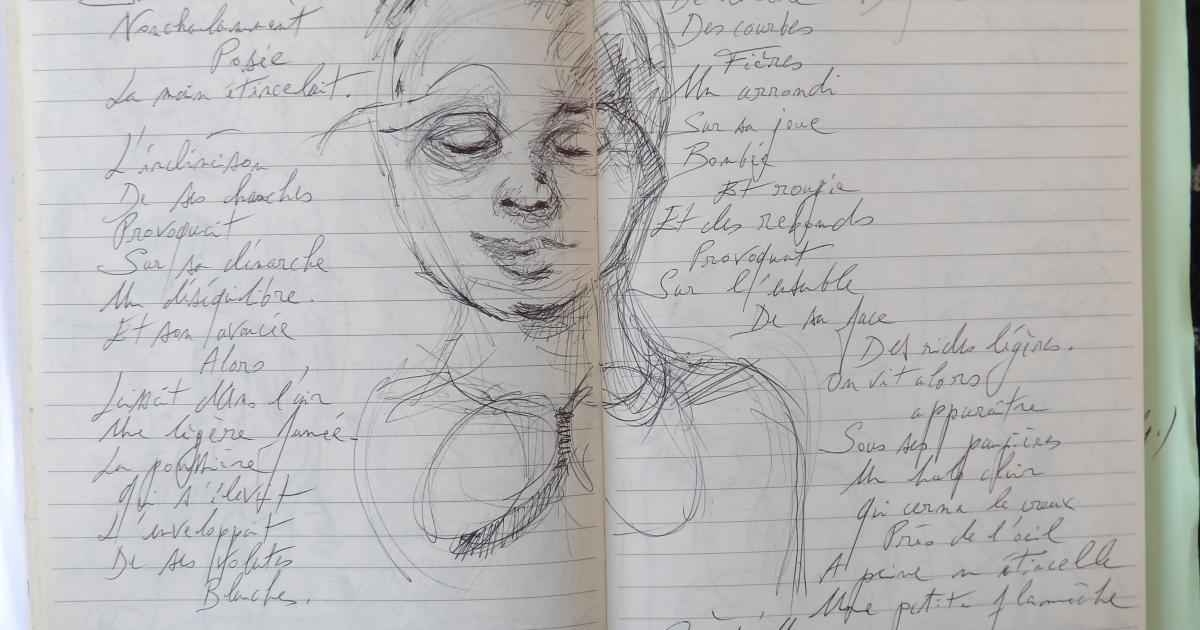 Nonchalamment
Posée
La main étincelait.
L'inclinaison
De ses hanches
Provoquait
Sur sa démarche
Un déséquilibre.
Et son avancée
Alors,
Laissait dans l'air
Une légère fumée
La poussière
Qui s'élevait
L'enveloppait
De ses volutes
Blanches.
Des courbes
Fières
Un arrondi
Sur sa joue
Bombée
Et rougie
Et des rebonds
Provoquant
Sur l'ensemble
De sa face
Des rides légères.
On vit alors
apparaître
Sous ses paupières
Un halo clair
Qui cerna le creux
Près de l'œil
A peine un étincelle
Une petite flammèche